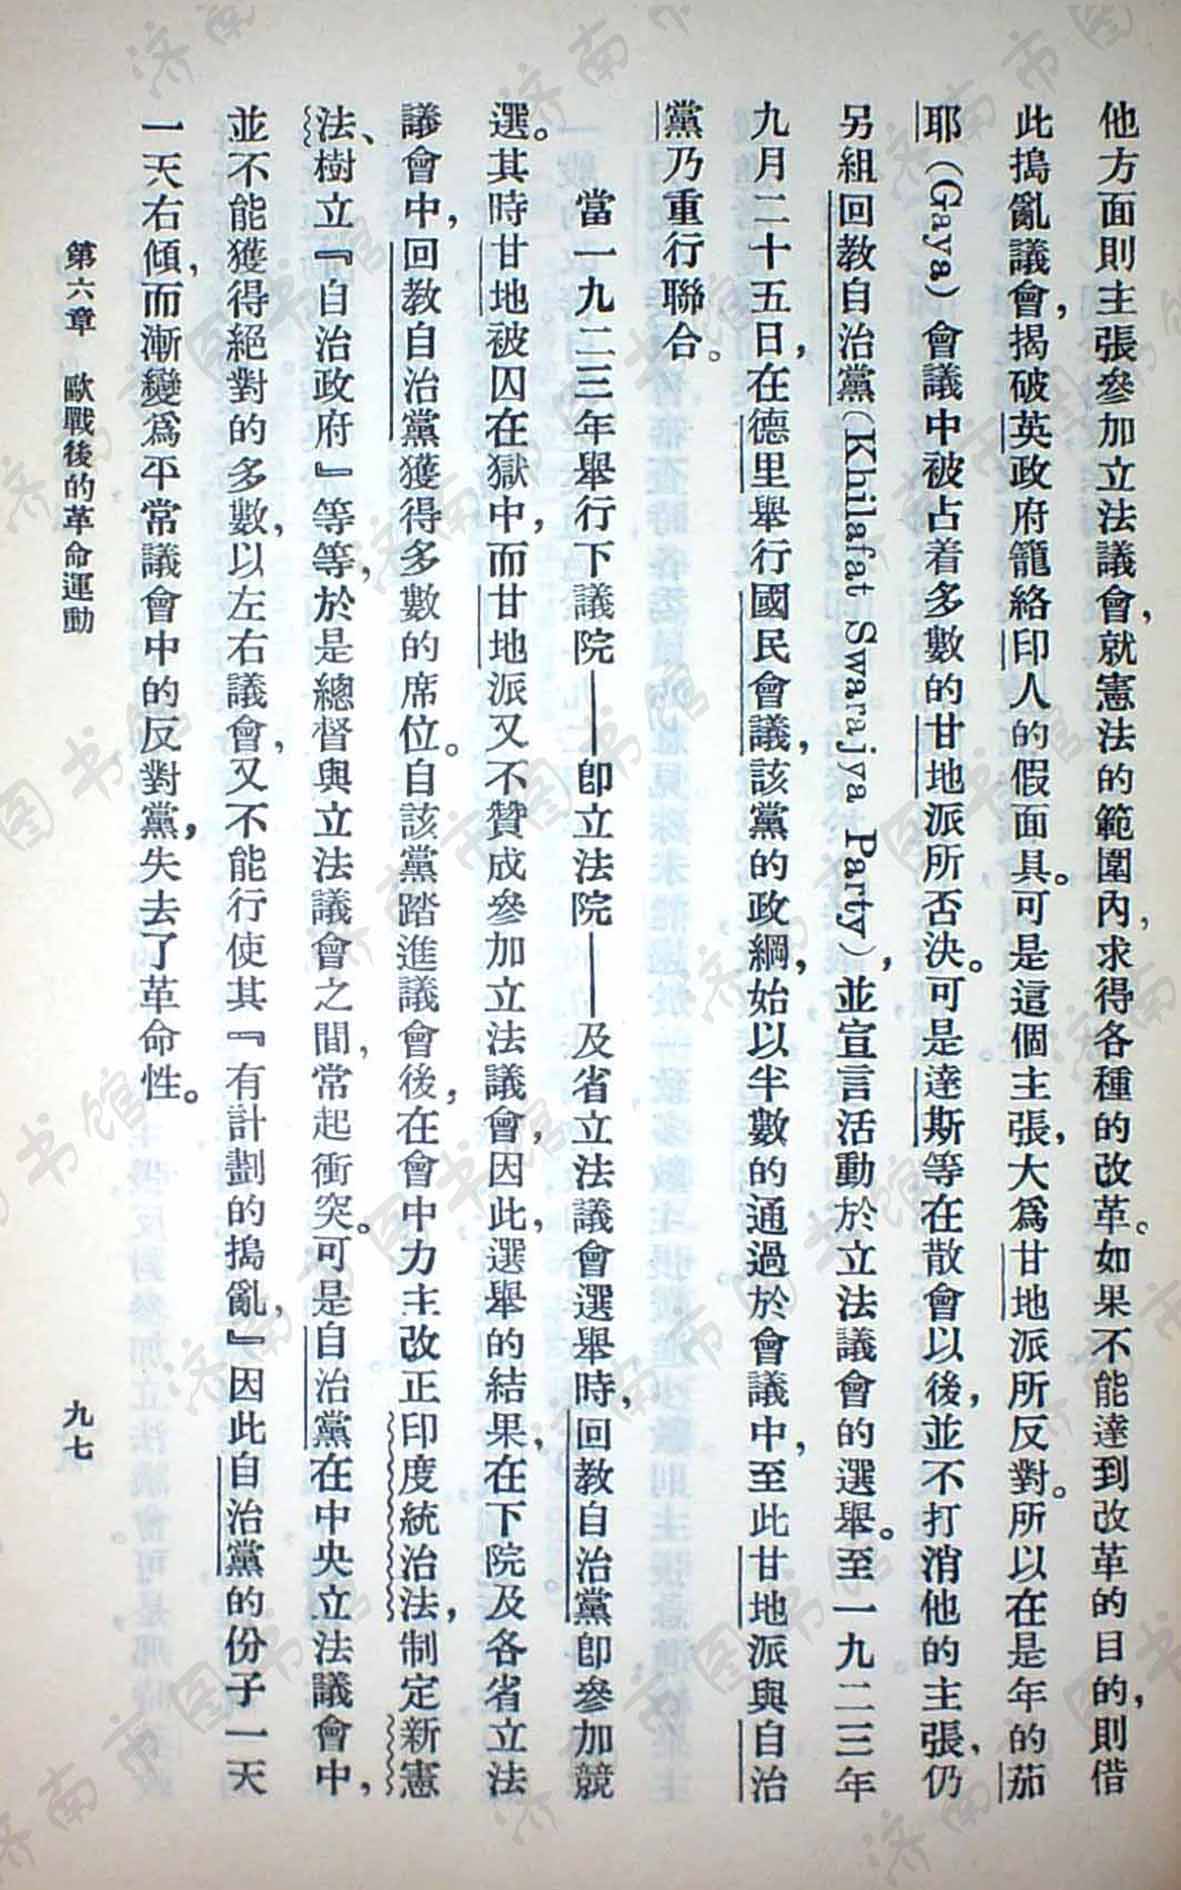 他方面則主張參加立法議會，就憲法的範圍內，求得各種的改革。如果不能達到改革的目的，則借
此搗亂議會，揭破英政府籠絡印人的假面具。可是這個主張，大爲甘地派所反對。所以在是年的茄
耶（Gaya）會議中被占着多數的甘地派所否決。可是達斯等在散會以後，並不打消他的主張，仍
另組回教自治黨（Khilafat Swarajya Party），並宣言活動於立法議會的選舉。至一九二三年
九月二十五日，在德里舉行國民會議，該黨的政綱，始以半數的通過於會議中，至此甘地派與自治
黨乃重行聯合。
當一九二三年舉行下議院——卽立法院——及省立法議會選舉時，回教自治黨卽參加競
選。其時甘地被囚在獄中，而甘地派又不贊成參加立法議會，因此，選舉的結果，在下院及各省立法
議會中，回教自治黨獲得多數的席位。自該黨踏進議會後，在會中力主改正印度統治法，制定新憲
法、樹立『自治政府』等等，於是總督與立法議會之間，常起衝突。可是自治黨在中央立法議會中，
並不能獲得絕對的多數，以左右議會，又不能行使其『有計劃的搗亂，』因此自治黨的份子一天
一天右傾，而漸變爲平常議會中的反對黨，失去了革命性。
第六章　歐戰後的革命運動
九七
济南市图书馆